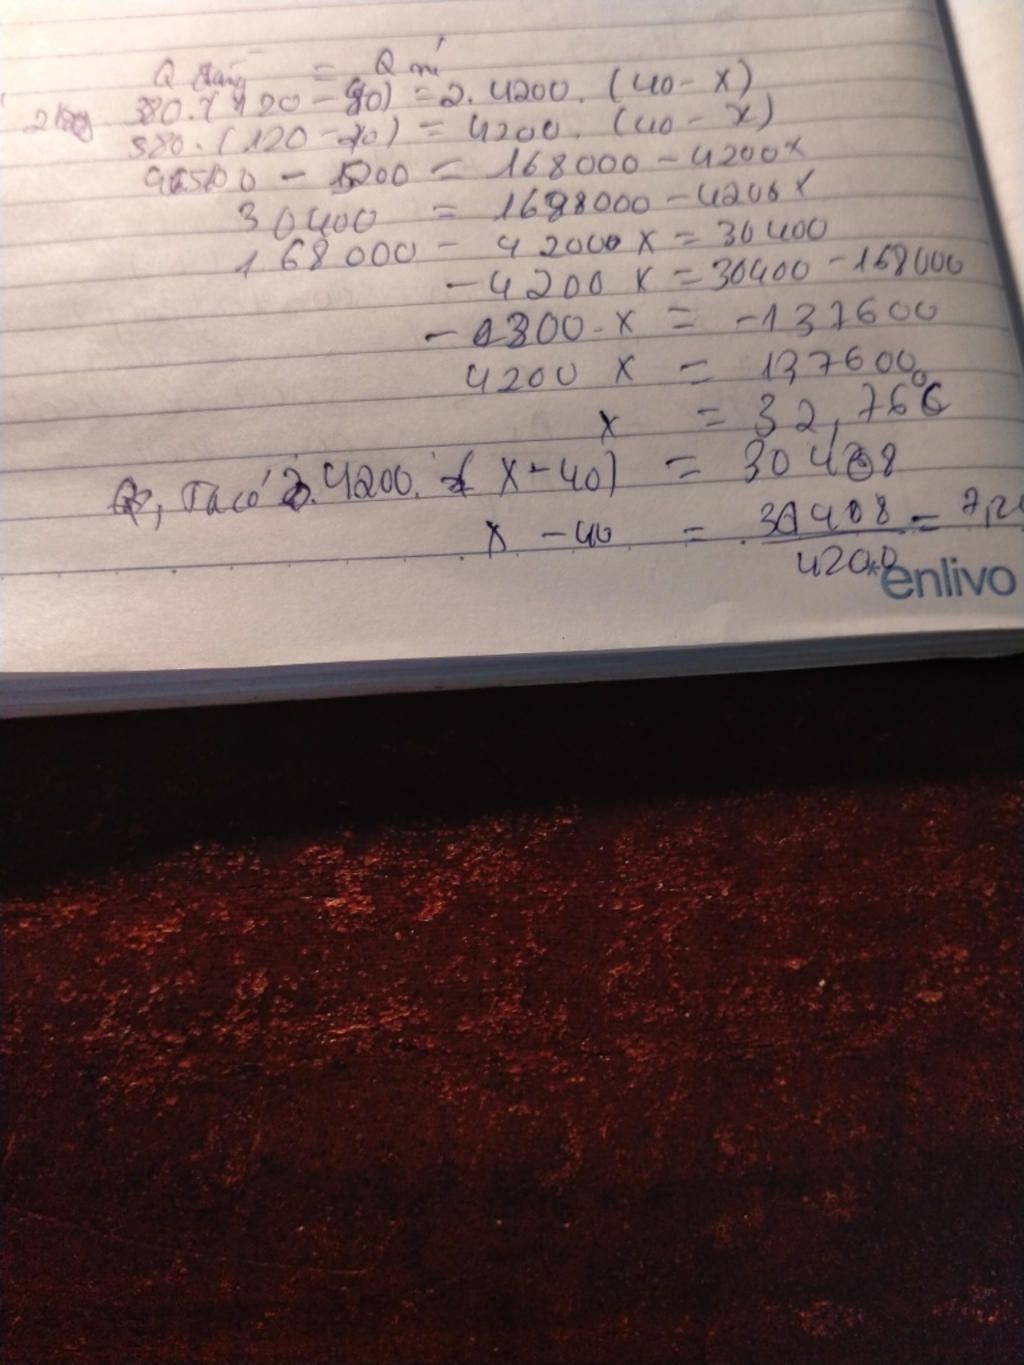 Q = Q
380.(120 - 80) = 2.4200.(40 - x)
380.(120 - 40) = 4200.(40 - x)
- 15200 = 168000 - 4200x
30400 = 168000 - 4200x
168000 - 42000 x = 30400
- 4200 x = 30400 - 168000
- 4300 - x = - 137600
4200 x = 137600
x = 32,76 °C
Ta có 2.4200. ( x - 40) = 30408
x - 40 = 30408 / 4200 = 7,2
enlivo